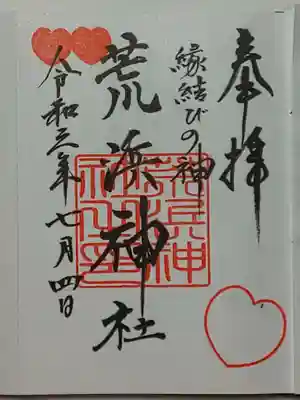 奉拝
縁結びの神
荒浜神社
令和三年七月四日